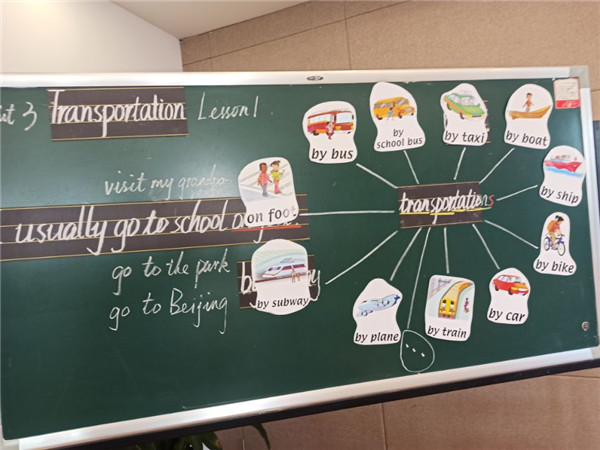 3 Transportation Lesson 1
visit my
usually go to school on foot
go to the park
go to Beijing
on foot
by subway
transportations
by bus
by school bus
by taxi
by boat
by ship
by bike
by car
by train
by plane